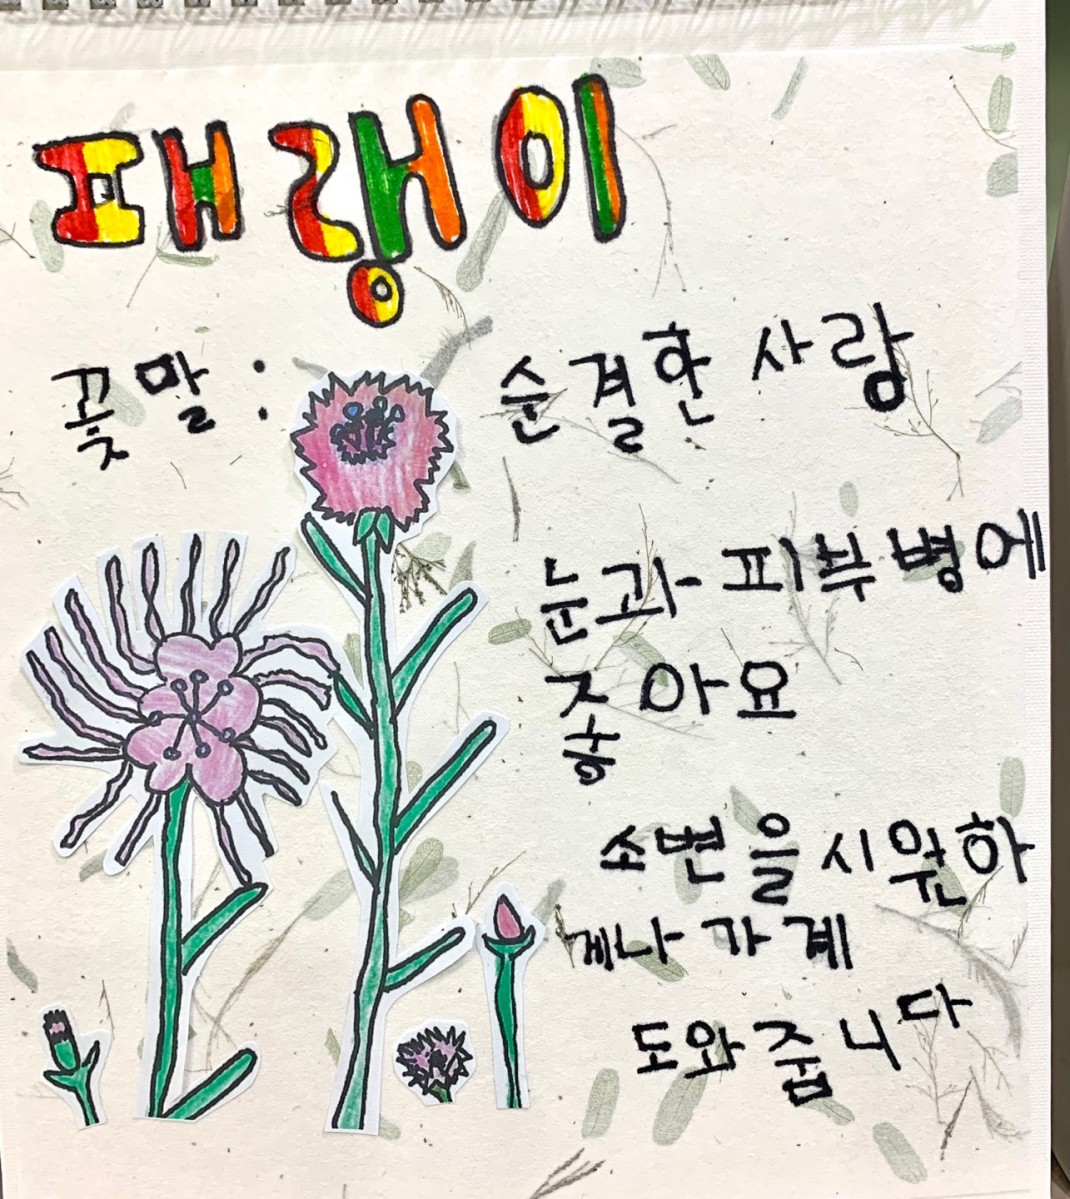 패랭이
꽃말 : 순결한 사랑
눈과 피부병에
좋아요
소변을 시원하
게나가게
도와줍니다